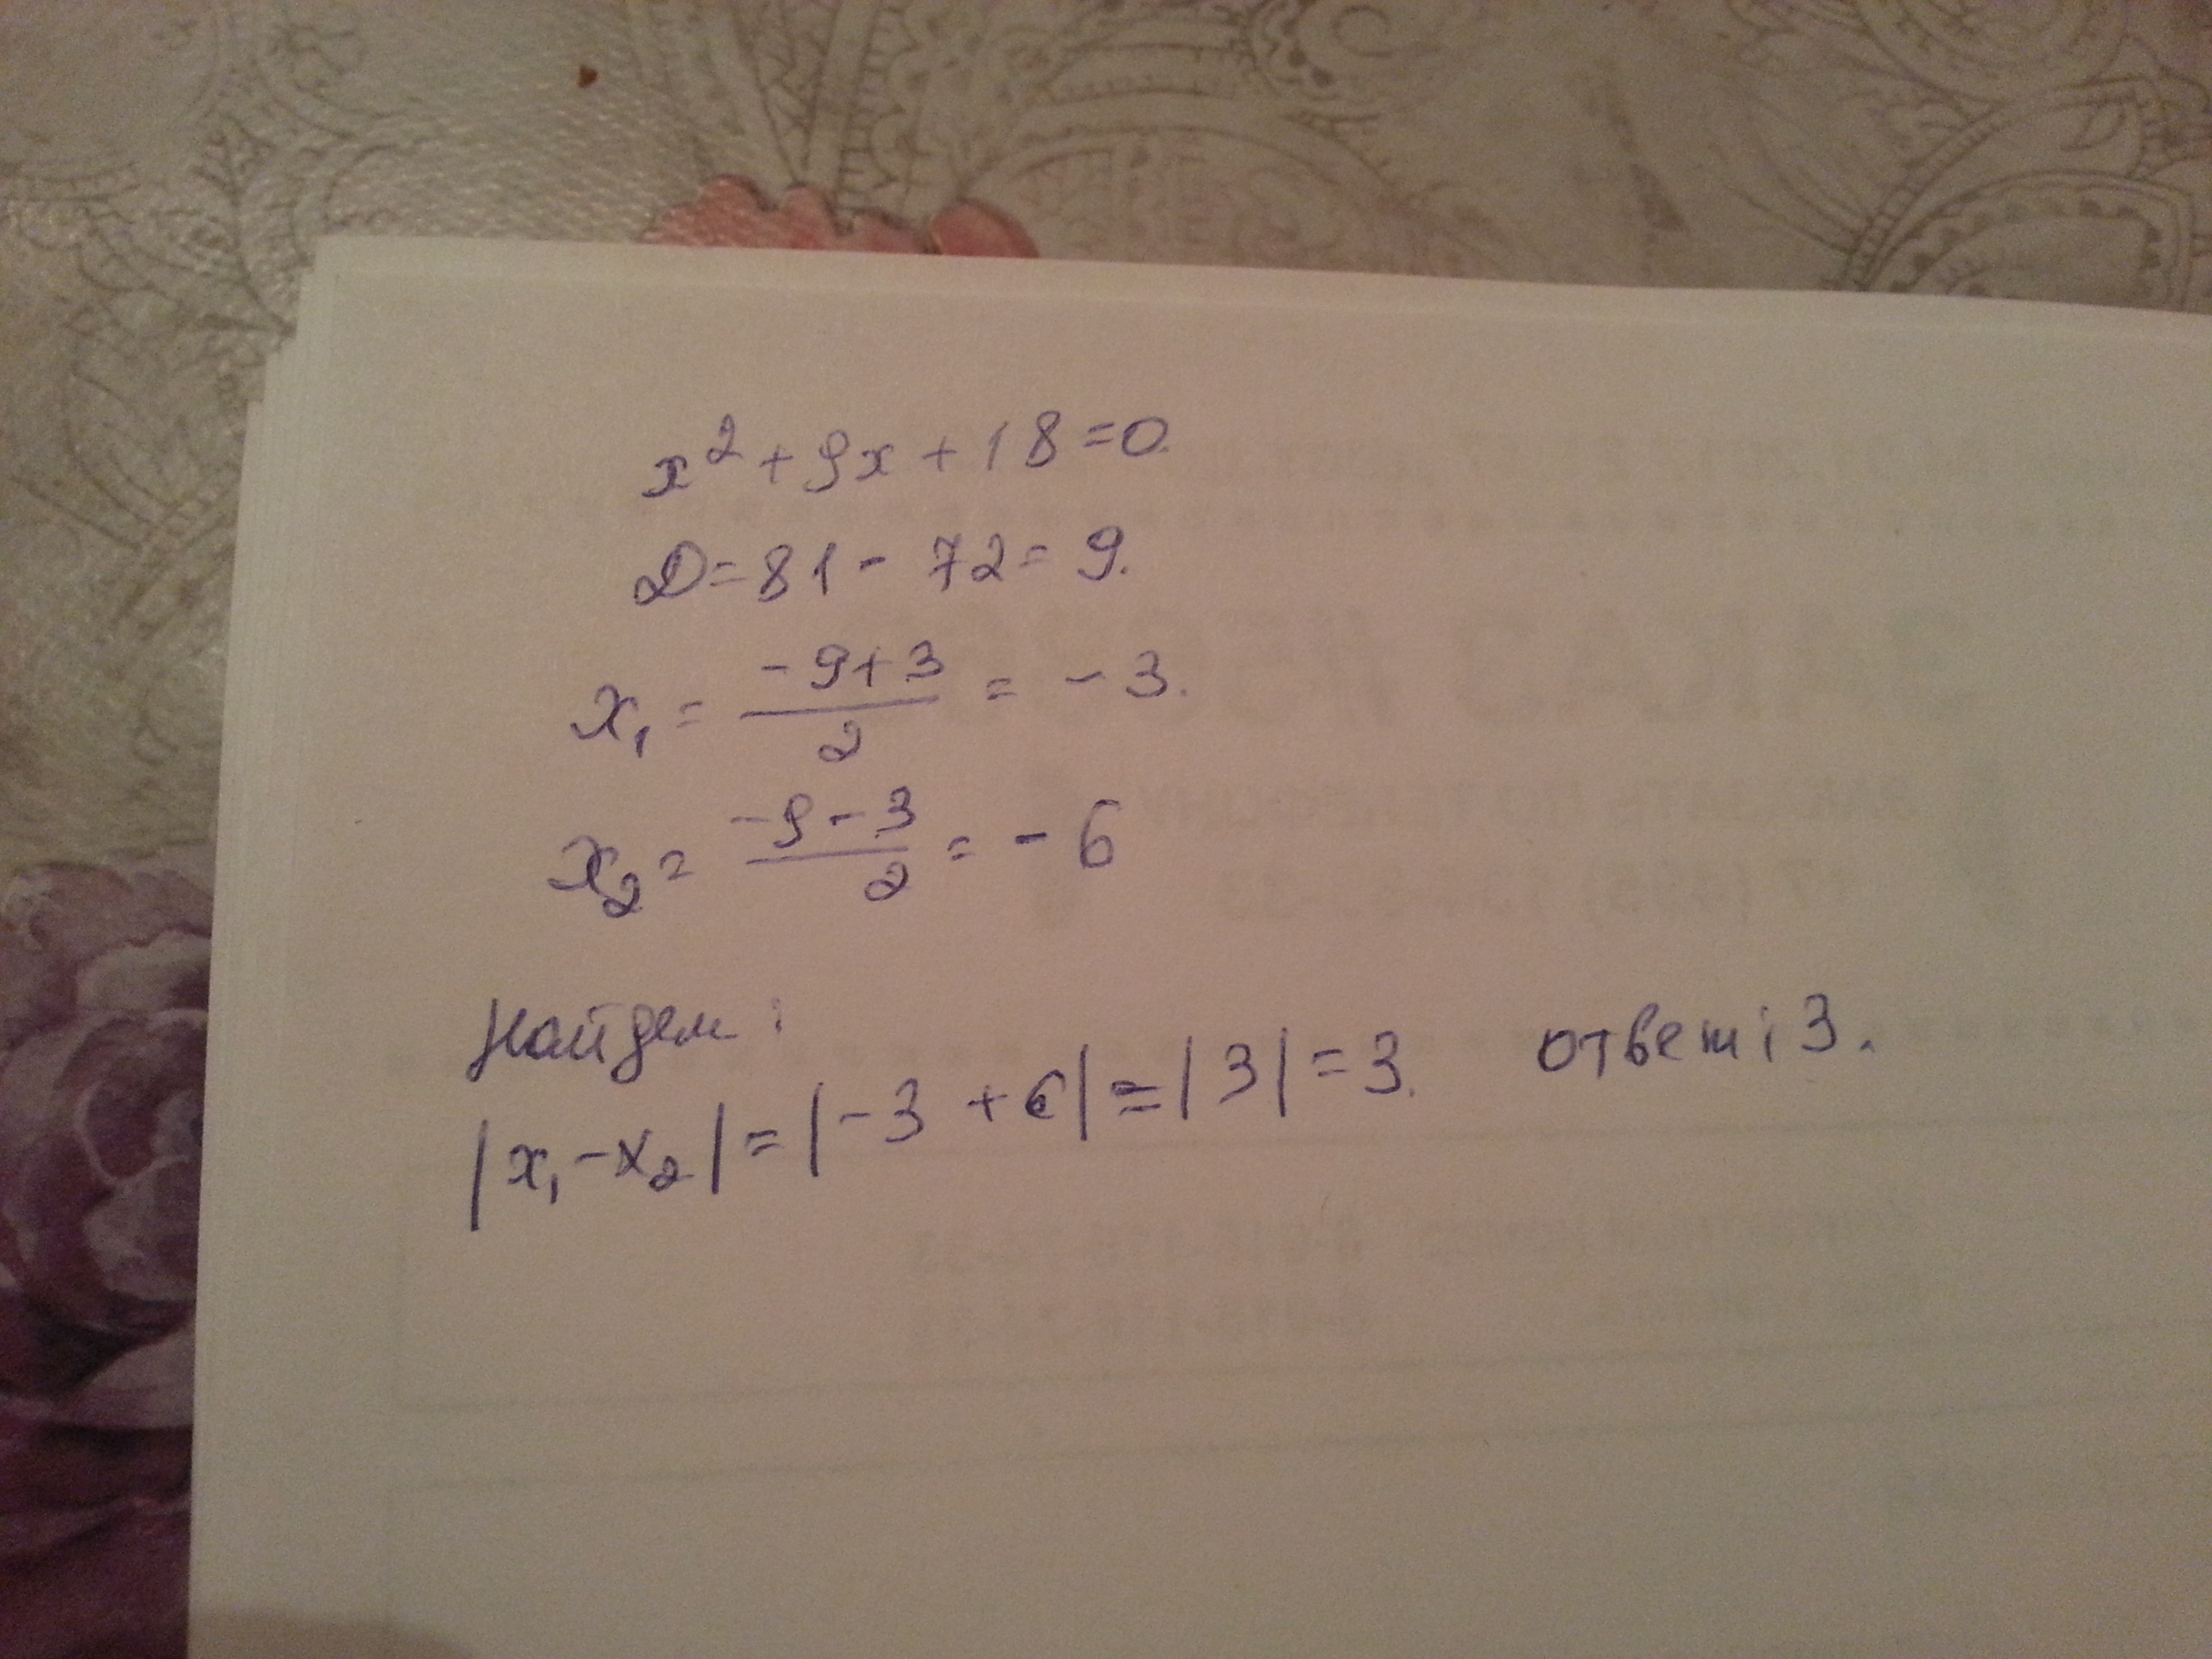 x² + 9x + 18 = 0.
D = 81 - 72 = 9.
x₁ = (-9+3)/2 = -3.
x₂ = (-9-3)/2 = -6
Найдем:
|x₁ - x₂| = |-3 + 6| = |3| = 3. ответ: 3.